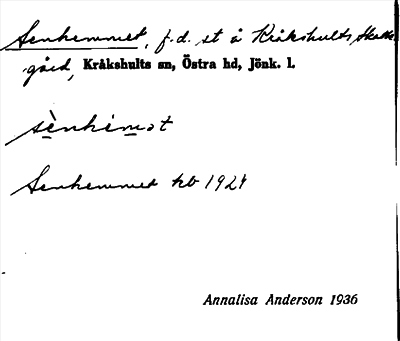 Senhemmet, f.d. st å Kråkshults Skatte
gård, Kråkshults sn, Östra hd, Jönk. l.
sènhèmət
Senhemmet kb 1921
Annalisa Anderson 1936